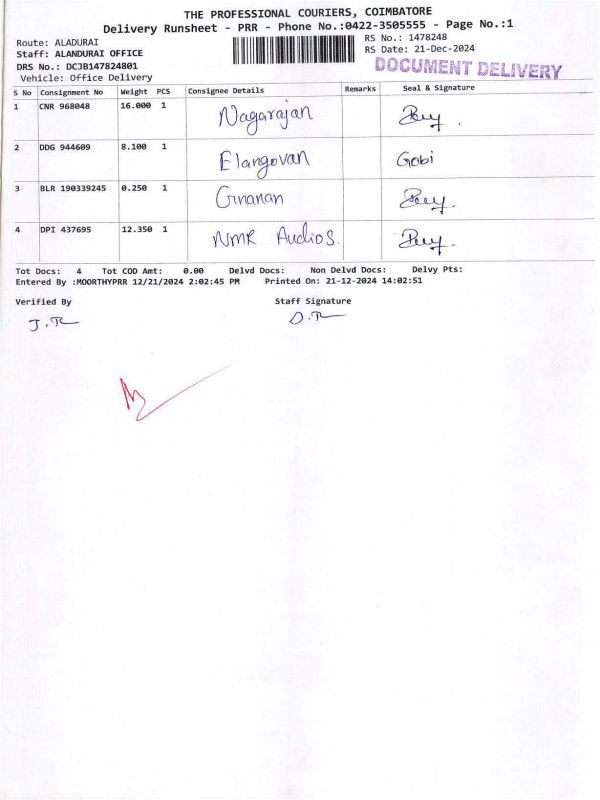 THE PROFESSIONAL COURIERS, COIMBATORE
Delivery Runsheet - PRR - Phone No.:0422-3505555 - Page No.:1
Route: ALADURAI RS No.: 1478248
Staff: ALANDURAI OFFICE RS Date: 21-Dec-2024
DRS No.: DCJB147824801 DOCUMENT DELIVERY
Vehicle: Office Delivery
S No Consignment No Weight PCS Consignee Details Remarks Seal & Signature
1 CNR 968048 16.000 1 Nagarajan
2 DDG 944609 8.100 1 Elangovan Gobi
3 BLR 190339245 0.250 1 Gnanan
4 DPI 437695 12.350 1 NMR Audios.
Tot Docs: 4 Tot COD Amt: 0.00 Delvd Docs: Non Delvd Docs: Delvy Pts:
Entered By :MOORTHYPRR 12/21/2024 2:02:45 PM Printed On: 21-12-2024 14:02:51
Verified By Staff Signature